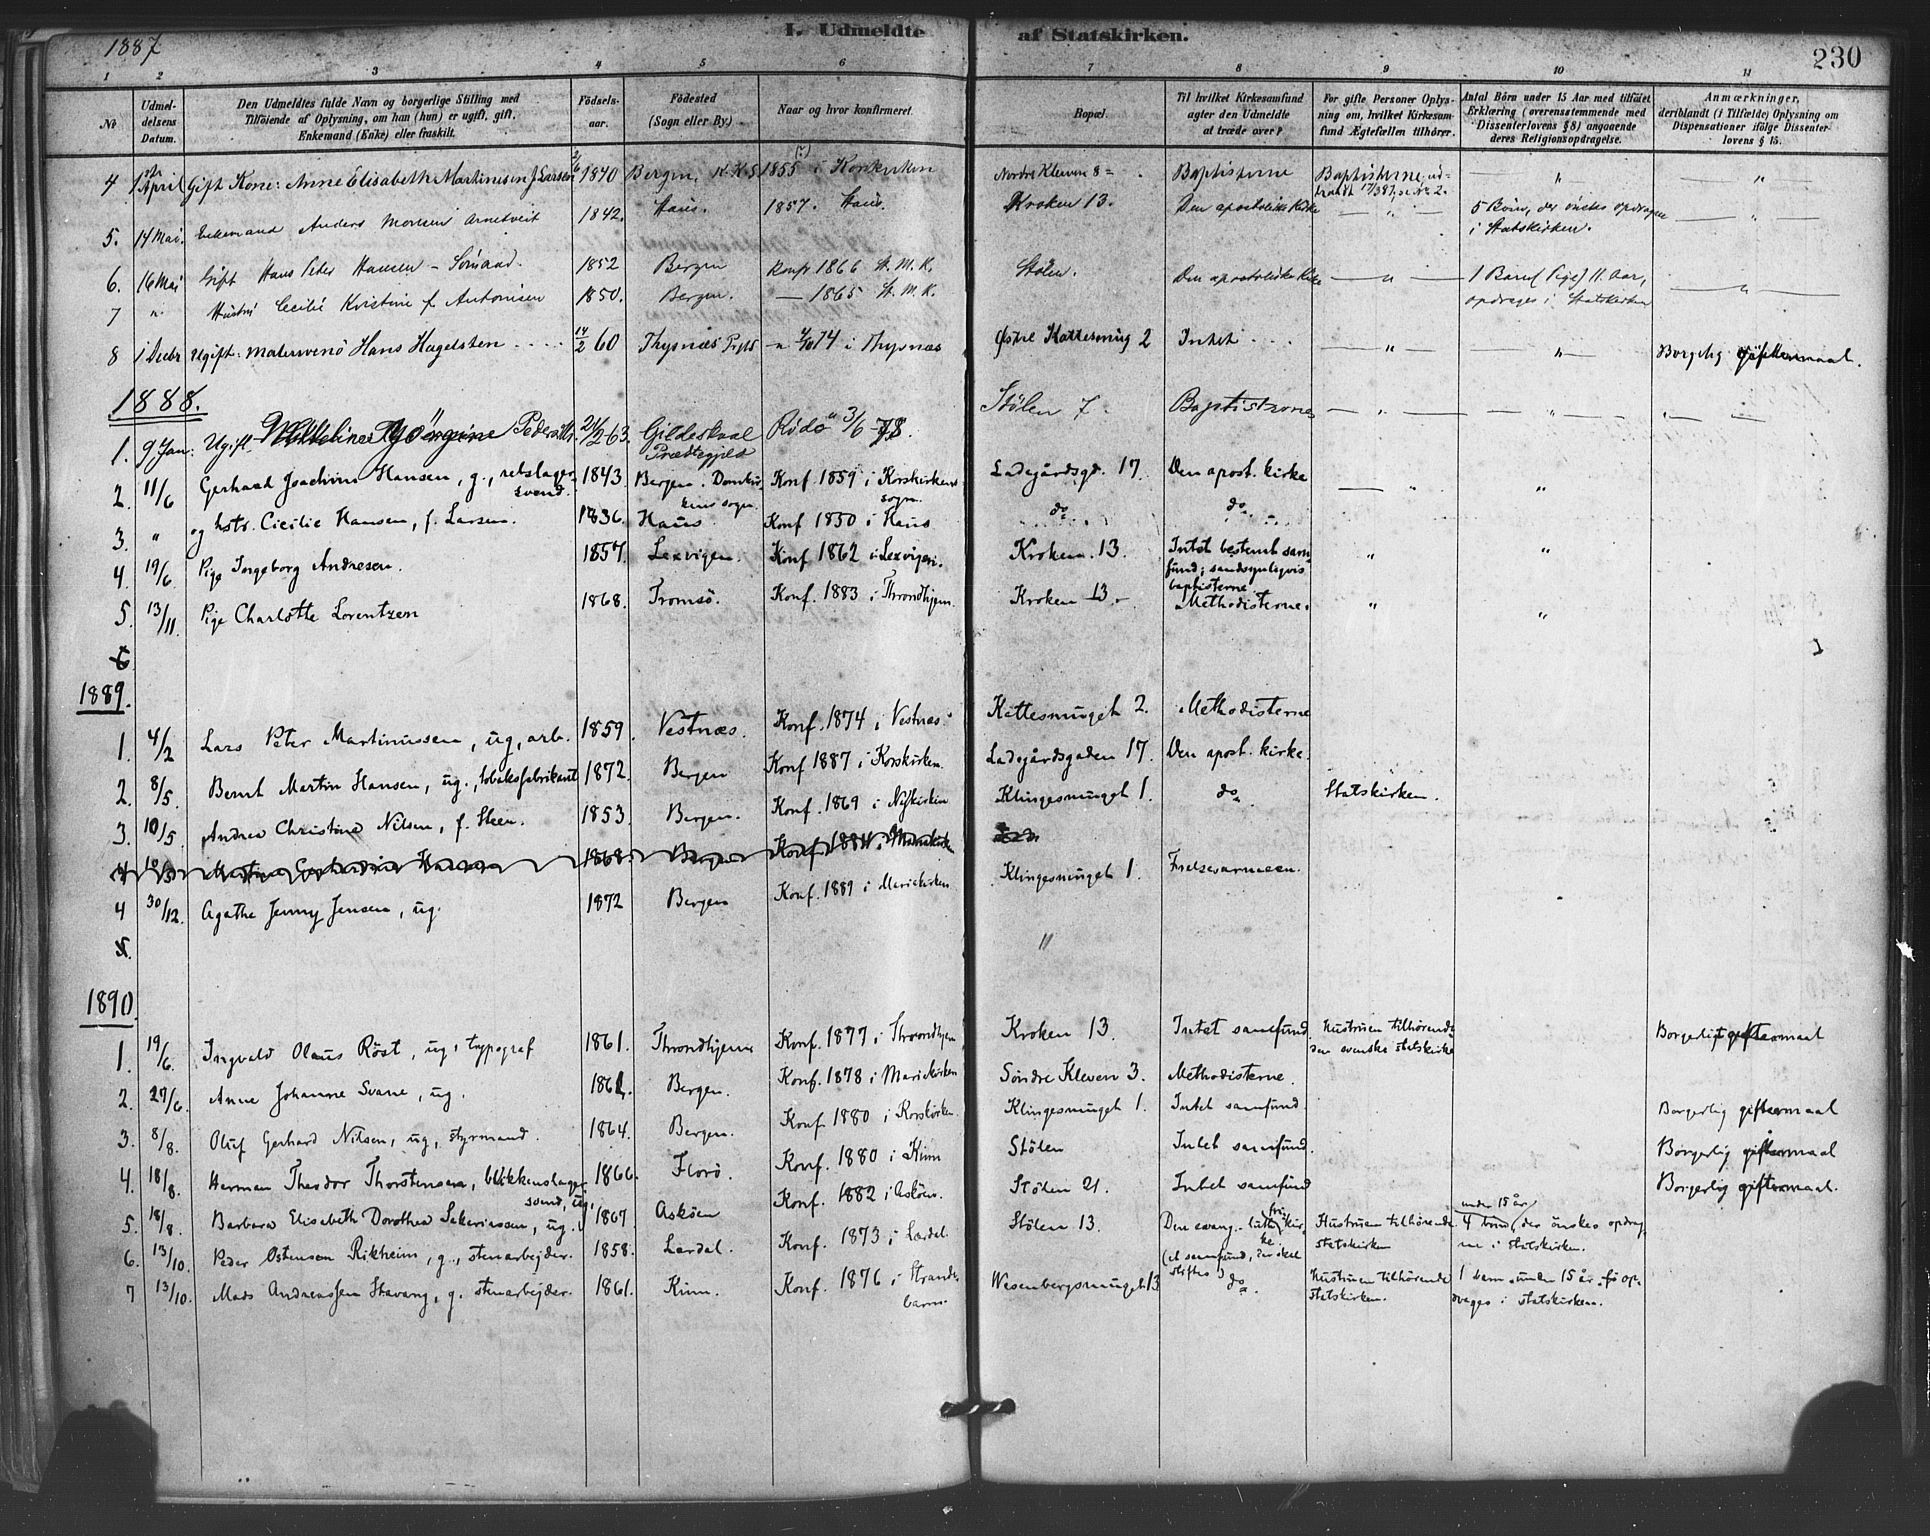 1887
I. Udmeldte af Statskirken.
230
1 2 3 4 5 6 7 8 9 10 11
№
Udmel-
delsens
Datum.
Den Udmeldtes fulde Navn og borgerlige Stilling med
Tilføiende af Oplysning, om han (hun) er ugift, gift,
Enkemand (Enke) eller fraskilt.
Fødsels-
aar.
Fødested
(Sogn eller By.)
Naar og hvor konfirmeret.
Bopæl.
Til hvilket Kirkesamfund
agter den Udmeldte
at træde over?
For gifte Personer Oplys-
ning om, hvilket Kirkesam-
fund Ægtefællen tilhører.
Antal Børn under 15 Aar med tilføiet
Erklæring (overensstemmende med
Dissenterlovens § 8) angaaende
deres Religionsopdragelse.
Anmærkninger,
deriblandt (i Tilfælde) Oplysning om
Dispensationer ifølge Dissenter-
lovens § 15.
4 1ste April Gift Kone: Anne Elisabeth Martinesen f. Larsen 2/6 1840 Bergen, K.K.S 1855 i Korskirken Nordre Kleven 8 Baptisterne Baptisterne, ud-
traadt 17/3 87, se № 2. " "
5. 14 Mai. Enkemand Anders Monsen Arnetveit 1842. Haus. 1857. Haus. Kroken 13. Den apostoliske Kirke — " — 5 Börn, der ønskes opdragne
i Statskirken. — " —
6. 16 Mai Gift Hans Peter Hansen - Sömand. 1852 Bergen Konf 1866 St. M. K. Stölen. Den apostoliske Kirke — " — 1 Barn (Pige) 11 Aar,
opdrages i Statskirken — " —
7 " Hustru Cecilie Kristine f. Antonisen 1850. Bergen. — 1865 St. M. K.
8 1 Decbr Ugift: Materwenö Hans Hagelsten 14/2 60 Thysnæs Prgld 4/10 74 i Thysnæs Østre Kattesmug 2 Intet — " — — " — Borgelig Gifttermaal.
1888.
1. 9 Jan: Ugift Jörgine Pedersdtr. 21/2 63. Gildeskaal
Prædtegjeld Rödö 3/6 78. Stölen 7. Baptisterne — " — — " — " —
2. 11/6 Gerhard Joachim Hansen, g., rebslager-
svend. 1843 Bergen. Domkir-
kens sogn. Konf. 1859 i Korskirkens
sogn. Ladegårdsgd. 17. Den apost. kirke — " — "
3. " og hstr. Cicilie Hansen, f. Larsen. 1836. Haus Konf 1850 i Haus do do
4 19/6 Pige Ingeborg Andresen. 1857. Lexvigen. Konf 1862 i Lexvigen. Kroken. 13. Intet bestemt sam-
fund; sandsynligvis
baptisterne " "
5 13/11. Pige Charlotte Lorentzen 1868. Tromsö. Konf. 1883 i Throndhjem. Kroken 13. Methodisterne. " "
6
1889.
1. 4/2 Lars Peter Martinussen, ug, arb. 1859. Vestnæs. Konf. 1874 i Vestnæs Kattesmuget 2. Methodisterne
2. 8/5. Bernt Martin Hansen, ug., tobaksfabrikant 1872. Bergen Konf 1887 i Korskirken. Ladegårdsgaden 17. Den apost. kirke.
3. 10/5 Andrea Christine Nilsen, f. Steen. 1853 Bergen. Konf. 1869 i Nykirken Klingesmuget 1. do Statskirken.
4 Martine Gerhardine Hansen 1868. Bergen Konf. 1884 i Mariakirken
4 30/12. Agathe Jenny Jensen, ug. 1872 Bergen Konf. 1889 i Mariekirken Klingesmuget 1. Frelsesarmeen.
5. "
1890.
1. 19/6. Ingvald Olaus Röst, ug, typograf 1861. Throndhjem Konf. 1877 i Throndhjem Kroken 13. Intet samfund. Hustruen tilhörende
den svenske statskirke Borgerligt giftermaal
2. 27/6. Anne Johanne Svane, ug. 1861. Bergen. Konf. 1878 i Mariekirken Söndre Kleven 3. Methodisterne.
3. 8/8. Oluf Gerhard Nilsen, ug, styrmand. 1864. Bergen. Konf. 1880 i Korskirken. Klingesmuget 1. Intet samfund. Borgerlig giftermaal
4. 18/8. Herman Theodor Thorstensen, blikkenslager-
svend, ug. 1866. Florö Konf. 1880 i Kinn Stölen Intet samfund. Borgerlig giftermaal
5. 18/8. Barbara Elisabeth Dorothea Sakariassen, ug. 1867. Asköen Konf. 1882 i Asköen. Stölen 21. Intet samfund Borgerlig giftermaal.
6. 13/10. Peder Ostensen Rikheim, g., stenarbejder. 1858. Lærdal. Konf. 1873 i Lærdal Stölen 13. Den evang. luth. frikir-
ke.
(et samfund, der skal
stiftes) Hustruen tilhörende
statskirken under 15 år
4 börn, der önskes opdrag-
ne i statskirken.
7 13/10. Mads Andreassen Stavang, g. stenarbejder. 1861. Kinn. Konf. 1876 i Strande-
barm. Wesenbergsmuget 13 do. Hustruen tilhörende
statskirken. 1 barn under 15 år få op-
drages i statskirken.